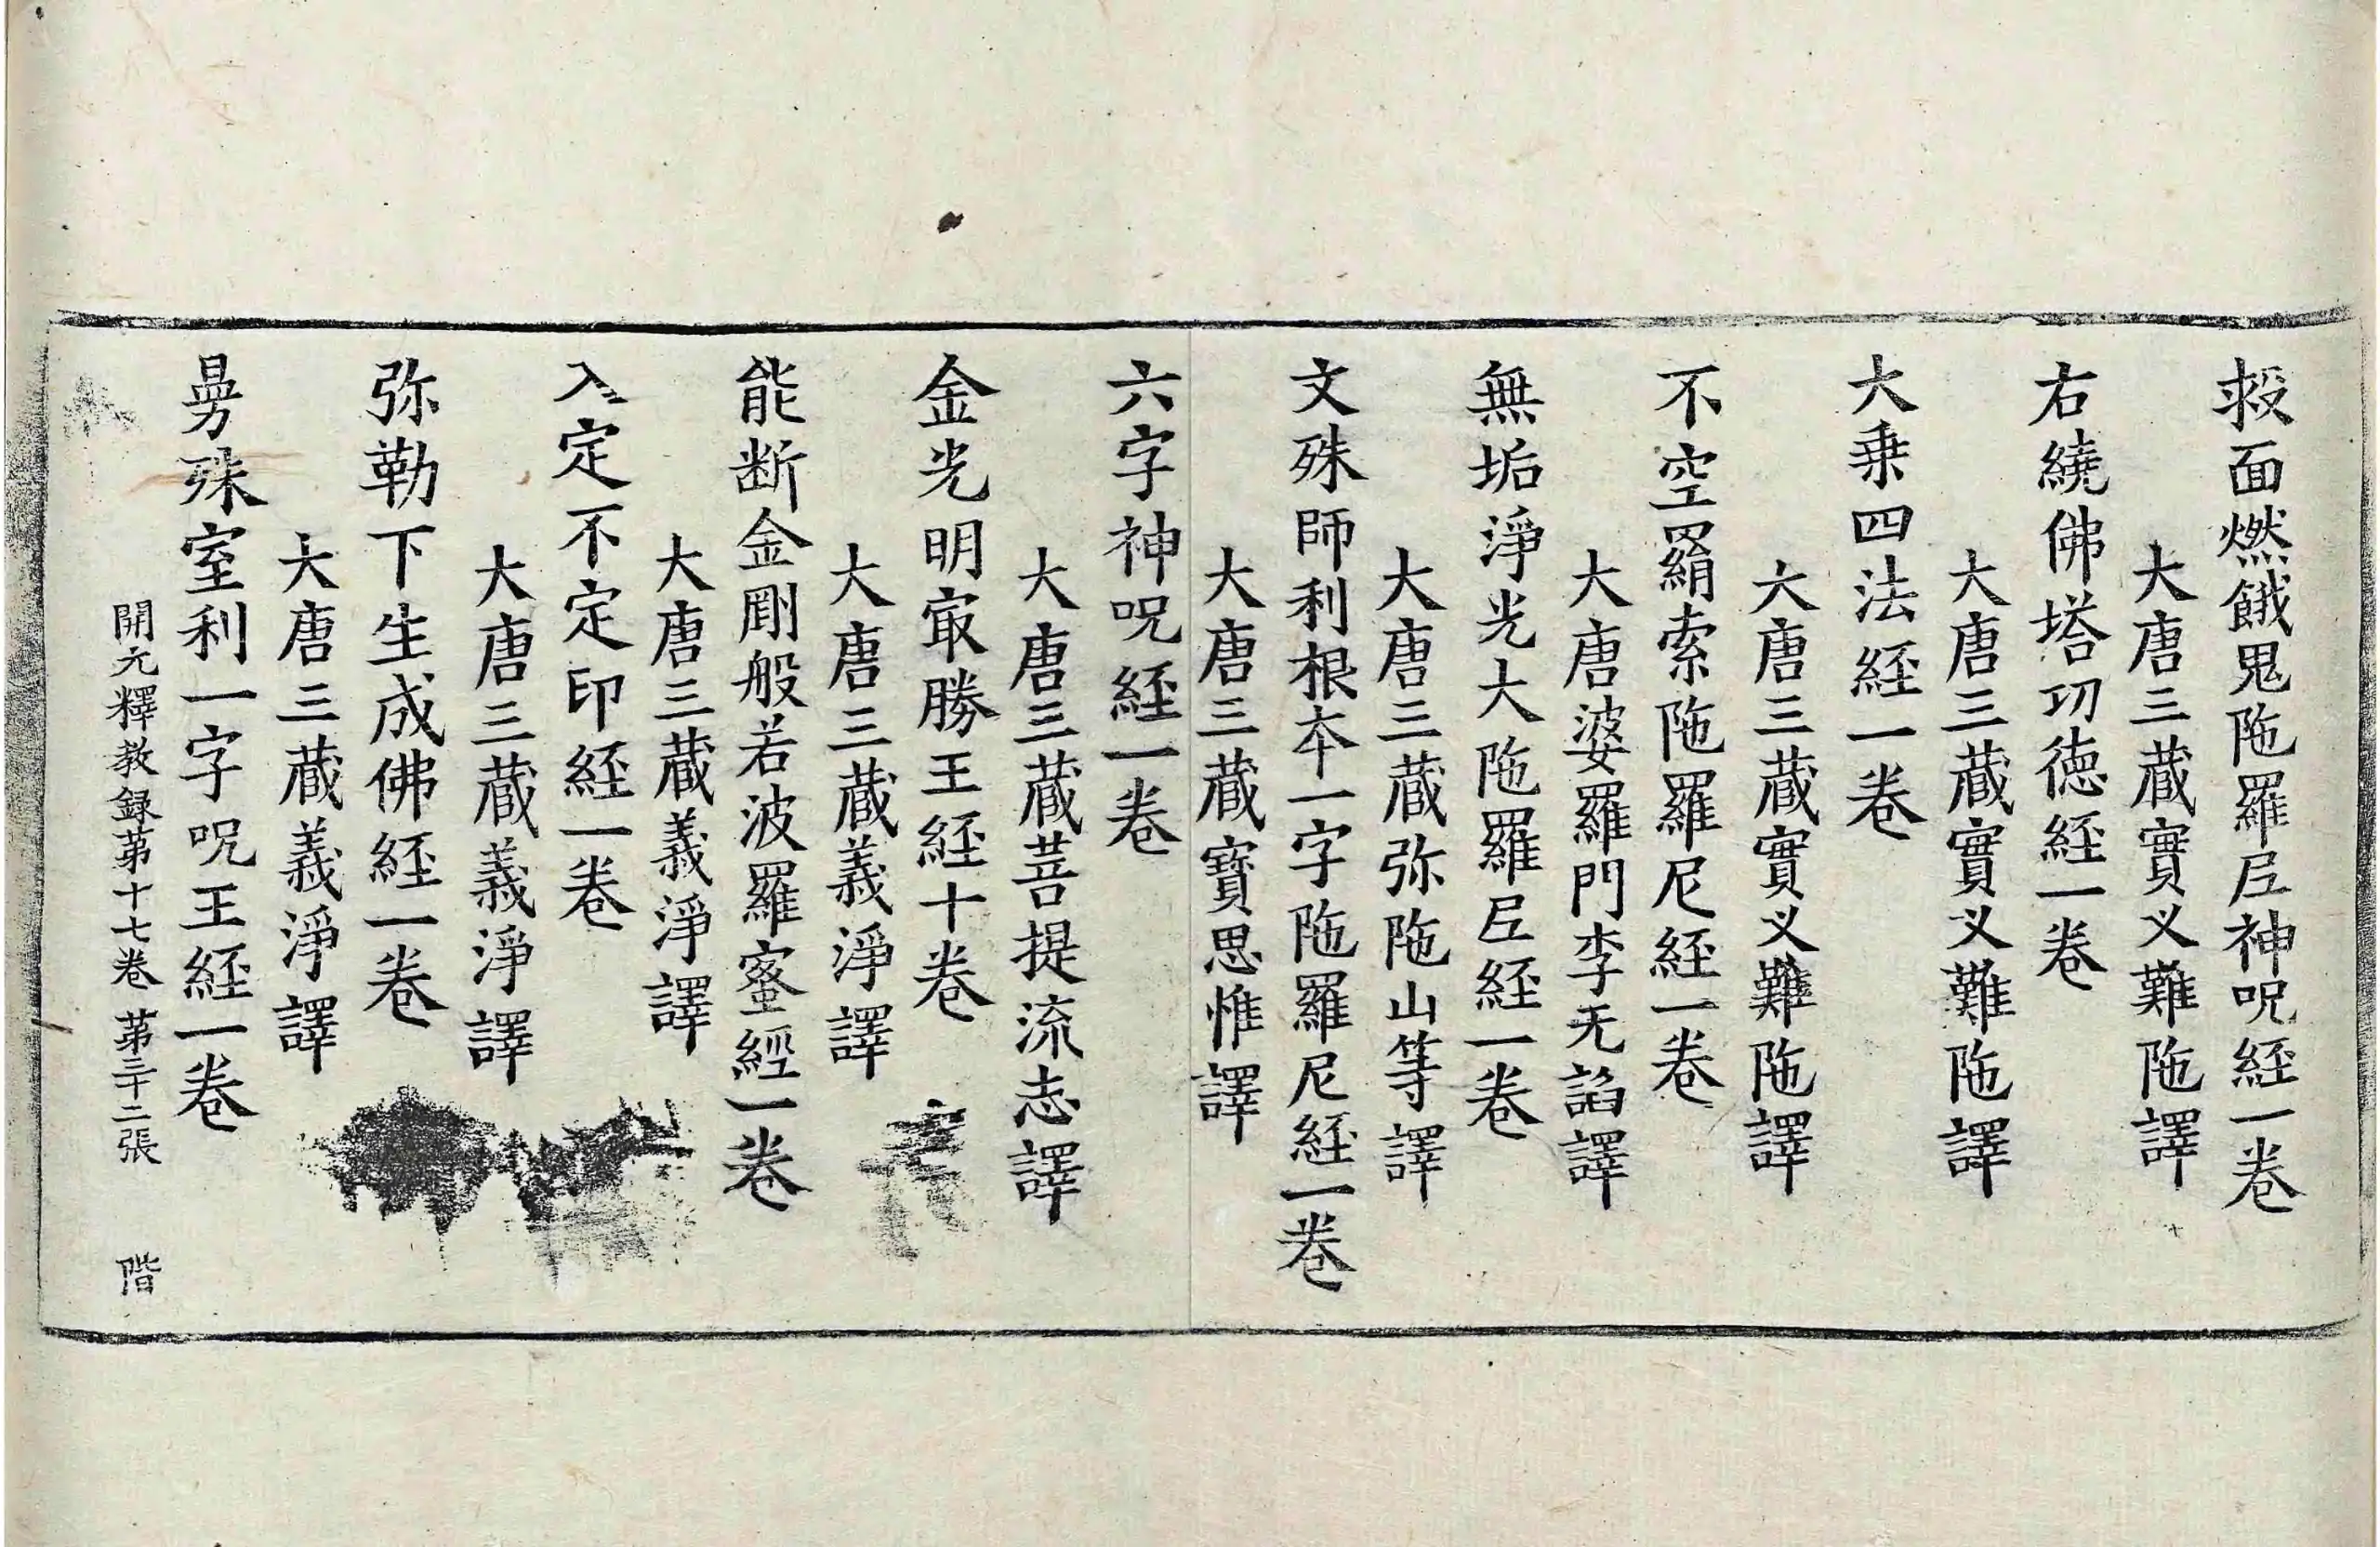 救面燃餓鬼陁羅𡰱神呪経一卷
大唐三蔵實叉難陁譯
右繞佛塔功徳経一卷
大唐三蔵實叉難陁譯
大乗四法経一卷
大唐三蔵實叉難陁譯
不空羂索陁羅尼経一卷
大唐婆羅門李无諂譯
無垢淨光大陁羅𡰱経一卷
大唐三蔵弥陁山等譯
文殊師利根夲一字陁羅尼経一卷
大唐三蔵寶思惟譯
六字神呪経一卷
大唐三蔵菩提流志譯
金光明㝡勝王経十卷
大唐三蔵義淨譯
能断金剛般若波羅蜜經一卷
大唐三蔵義淨譯
入定不定印経一卷
大唐三蔵義淨譯
弥勒下生成佛経一卷
大唐三蔵義淨譯
曼殊室利一字呪王経一卷
開元釋教録苐十七卷 苐三十二張 階